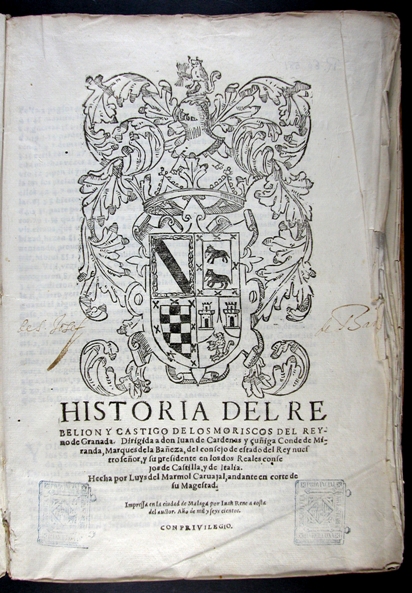 HISTORIA DEL RE
BELION Y CASTIGO DE LOS MORISCOS DEL REY-
no de Granada. Dirigida a don Iuan de Cardenas y çuñiga Conde de Mi-
randa, Marques de la Bañeza, del consejo de estado del Rey nues
tro señor, y su presidente en los dos Reales conse
jos de Castilla, y de Italia.
Hecha por Luys del Marmol Caruajal, andante en corte de
su Magestad.
Impressa en la ciudad de Malaga por Iuan Rene a costa
del auctor. Año de mil y seys cientos.
CON PRIVILEGIO.